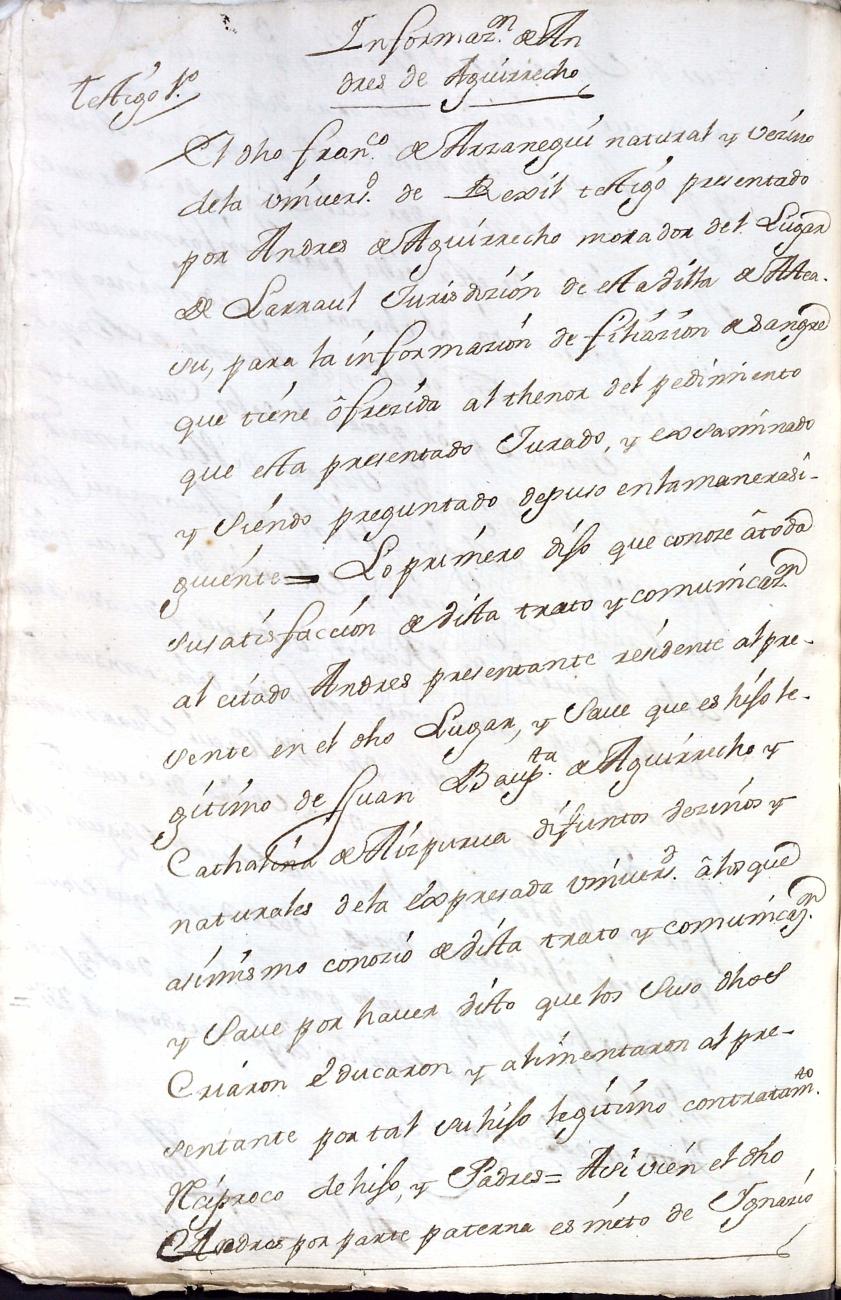 Informaz.n de An
dres de Aguirrecho
testigo 1.o
El dho fran.co de Arranegui natural y vezino
dela vnivers.d de Rexil testigo presentado
por Andres de Aguirrecho morador del Lugar
De Larraul Jurisdizión de esta villa de Astea-
su, para la informazión de filiázion de sangre
que tiéne ôfrezida al thenor del pedimiento
que esta presentado Jurado, y exsaminado
y siéndo preguntado depuso enlamanerasi-
guiénte = Lo primero dijo que conoze âtoda
susatisfacción de vista trato y comunicaz.n
al citado Andres presentante residente al pre-
sente en el dho Lugar, y Save que es hijo le-
gitimo de Juan Baup.ta de Aguirrecho y
Cathalina de Aizpurua difuntos vezinos y
naturales dela êxpresada vnivers.d âlosque
asimismo conozió de vista trato y comunicaz.n
y Save por haver visto que los suso dhos
Criáron êducaron y alimentaron al pre-
sentante por tal su hijo legitimo contratam.to
Rêziproco de hijo, y Padres = Asi vién el dho
Andres por parte paterna es niéto de Ignazio